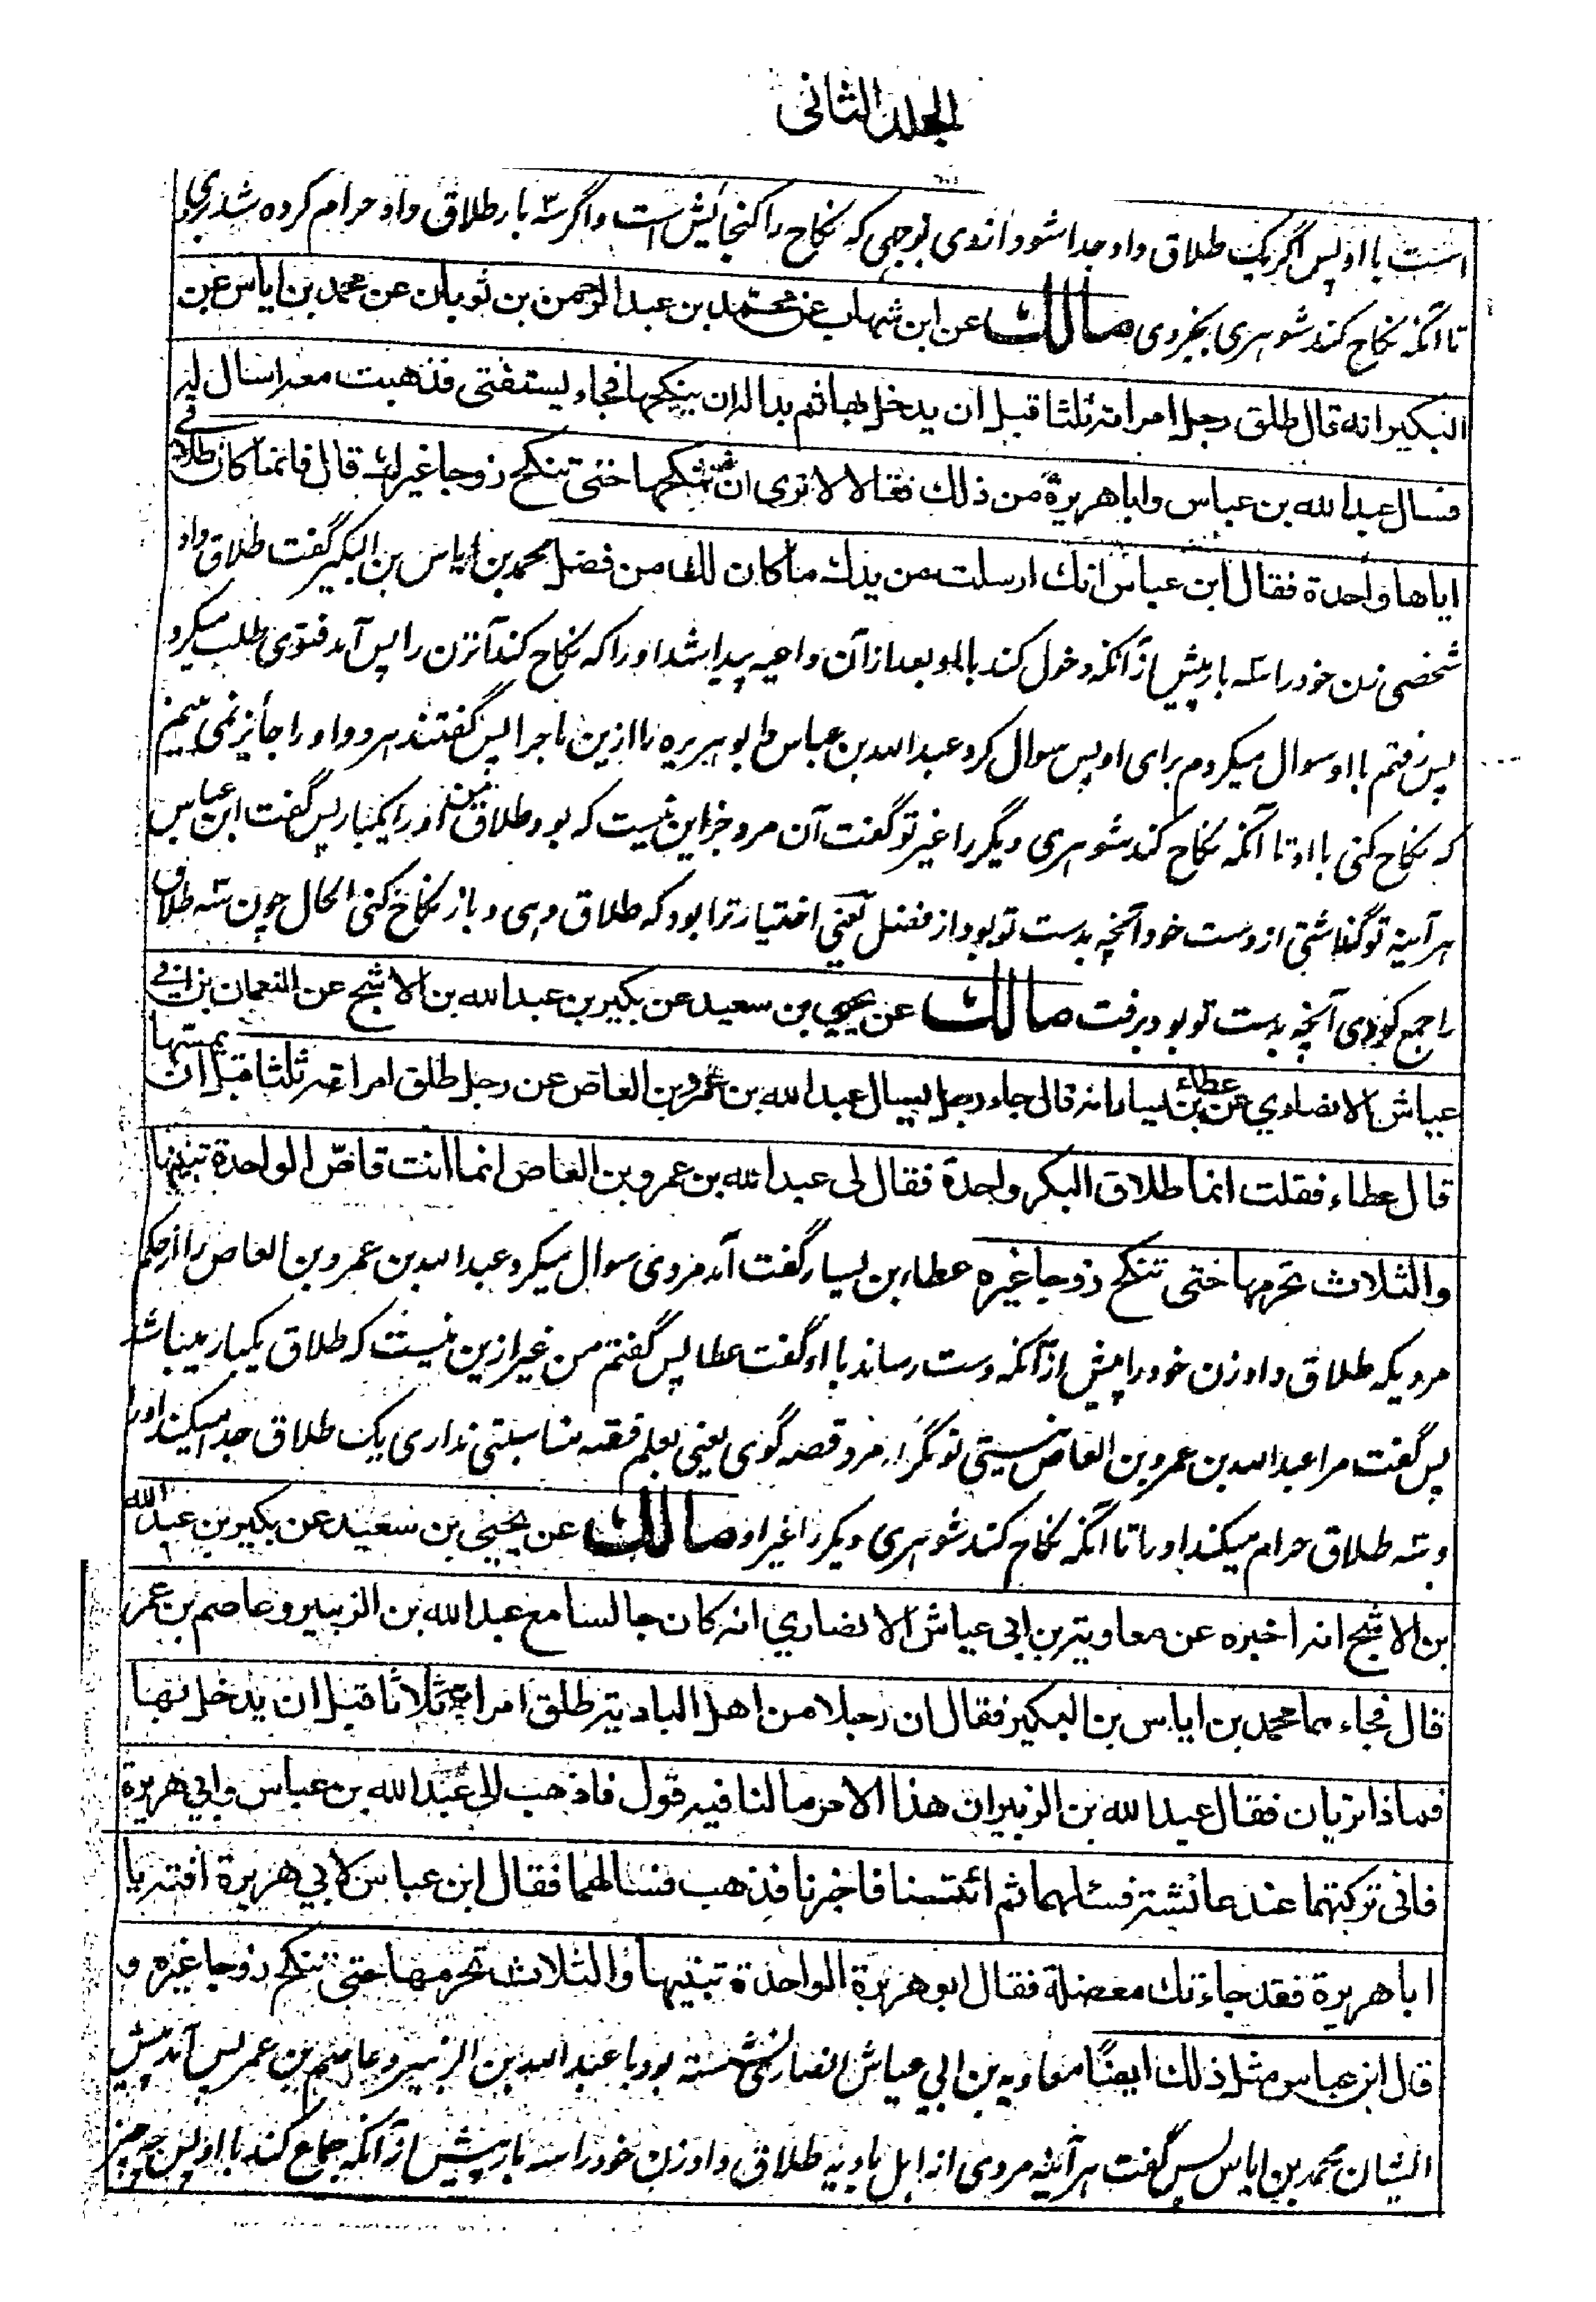 الجلد الثانی
است با او پس اگر یک طلاق داد جدا شود ازوی بوجهی که نکاح را گنجائش است و اگر سه بار طلاق داد حرام کرده شد بروی
تا آنکه نکاح کند شوهری بجز وی مالك عن ابن شهاب عن محمد بن عبد الرحمن بن ثوبان عن محمد بن اياس عن
البكير انه قال طلق رجل امراته ثلثا قبل ان يدخل بها ثم بدا له ان ينكحها فجاء يستفتى فذهبت معه اسال له
فسال عبد الله بن عباس وابا هريرة من ذلك فقالا لا نرى ان تنكحها حتى تنكح زوجا غيرك قال فانما كان طلاقى
اياها واحدة فقال ابن عباس انك ارسلت من يدك ما كان لك من فضل محمد بن ایاس بن البکیر گفت طلاق داد
شخصی زن خود را سه بار پیش از آنکه دخول کند با او بعد ازآن داعیه پیدا شد او را که نکاح کند آنزن را پس آمد فتوی طلب میکرد
پس رفتم با او سوال میکردم برای او پس سوال کرد عبد الله بن عباس و ابو هریره را ازین ماجرا پس گفتند هر دو او را جائز نمی بینم
که نکاح کنی با او تا آنکه نکاح کند شوهری دیگر را غیر تو گفت آن مرد جز این نیست که بود طلاق من او را یکبار پس گفت ابن عباس
هر آینه تو گذاشتی از دست خود آنچه بدست تو بود از فضل یعنی اختیار ترا بود که طلاق دهی و باز نکاح کنی الحال چون سه طلاق
را جمع کردی آنچه بدست تو بود برفت مالك عن يحيى بن سعيد عن بكير بن عبد الله بن الاشج عن النعمان بن ابى
عياش الانصاري عن عطاء بن يسار انه قال جاء رجل يسال عبد الله بن عمرو بن العاص عن رجل طلق امراته ثلثا قبل ان يمسها
قال عطاء فقلت انما طلاق البكر واحدة فقال لى عبد الله بن عمرو بن العاص انما انت قاصّ الواحدة تبينها
والثلاث تحرمها حتى تنكح زوجا غيره عطاء بن یسار گفت آمد مردی سوال میکرد عبد الله بن عمرو بن العاص را از حکم
مردیکه طلاق داد زن خود را پیش از آنکه دست رساند با او گفت عطا پس گفتم من غیر ازین نیست که طلاق یکبار میباشد
پس گفت مرا عبد الله بن عمرو بن العاص نیستی تو مگر مرد قصه گوی یعنی بعلم فقه مناسبتی نداری یک طلاق جدا میکند او را
و سه طلاق حرام میکند او را تا آنکه نکاح کند شوهری دیگر را غیر او مالك عن يحيى بن سعيد عن بكير بن عبد الله
بن الاشج انه اخبره عن معاوية بن ابى عياش الانصاري انه كان جالسا مع عبد الله بن الزبير وعاصم بن عمر
قال فجاءهما محمد بن اياس بن البكير فقال ان رجلا من اهل البادية طلق امراته ثلاثا قبل ان يدخل بها
فماذا تريان فقال عبد الله بن الزبير ان هذا الامر ما لنا فيه قول فاذهب الى عبد الله بن عباس وابي هريرة
فانى تركتهما عند عائشة فسئلهما ثم ائتنا فاخبرنا فذهب فسالهما فقال ابن عباس لابي هريرة افته يا
ابا هريرة فقد جاءتك معضلة فقال ابو هريرة الواحدة تبينها والثلاث تحرمها حتى تنكح زوجا غيره و
قال ابن عباس مثل ذلك ايضًا معاویه بن ابی عیاش انصاری نشسته بود با عبد الله بن الزبیر و عاصم بن عمر پس آمد پیش
ایشان محمد بن ایاس پس گفت هر آینه مردی از اهل بادیه طلاق داد زن خود را سه بار پیش از آنکه جماع کند با او پس چه چیز